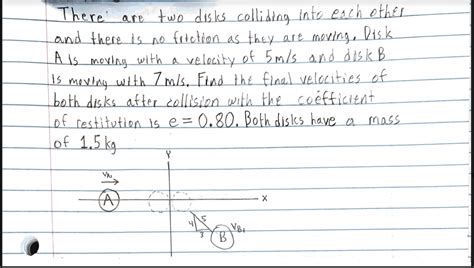 There are two disks colliding into each other
and there is no friction as they are moving. Disk
A is moving with a velocity of 5m/s and disk B
is moving with 7m/s. Find the final velocities of
both disks after collision with the coefficient
of restitution is e = 0.80. Both disks have a mass
of 1.5kg
Y
A
X
4
5
3
B
VB1